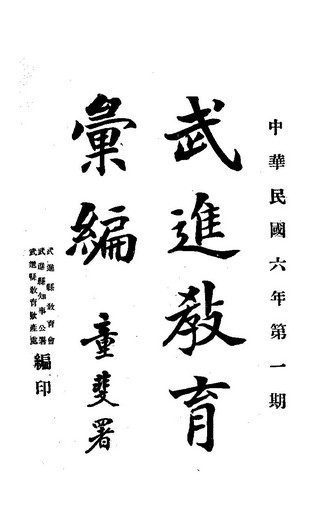 中華民國六年第一期
武進教育
彙編
童斐署
武進縣教育會
武進縣知事公署
武進縣教育款產處
編印